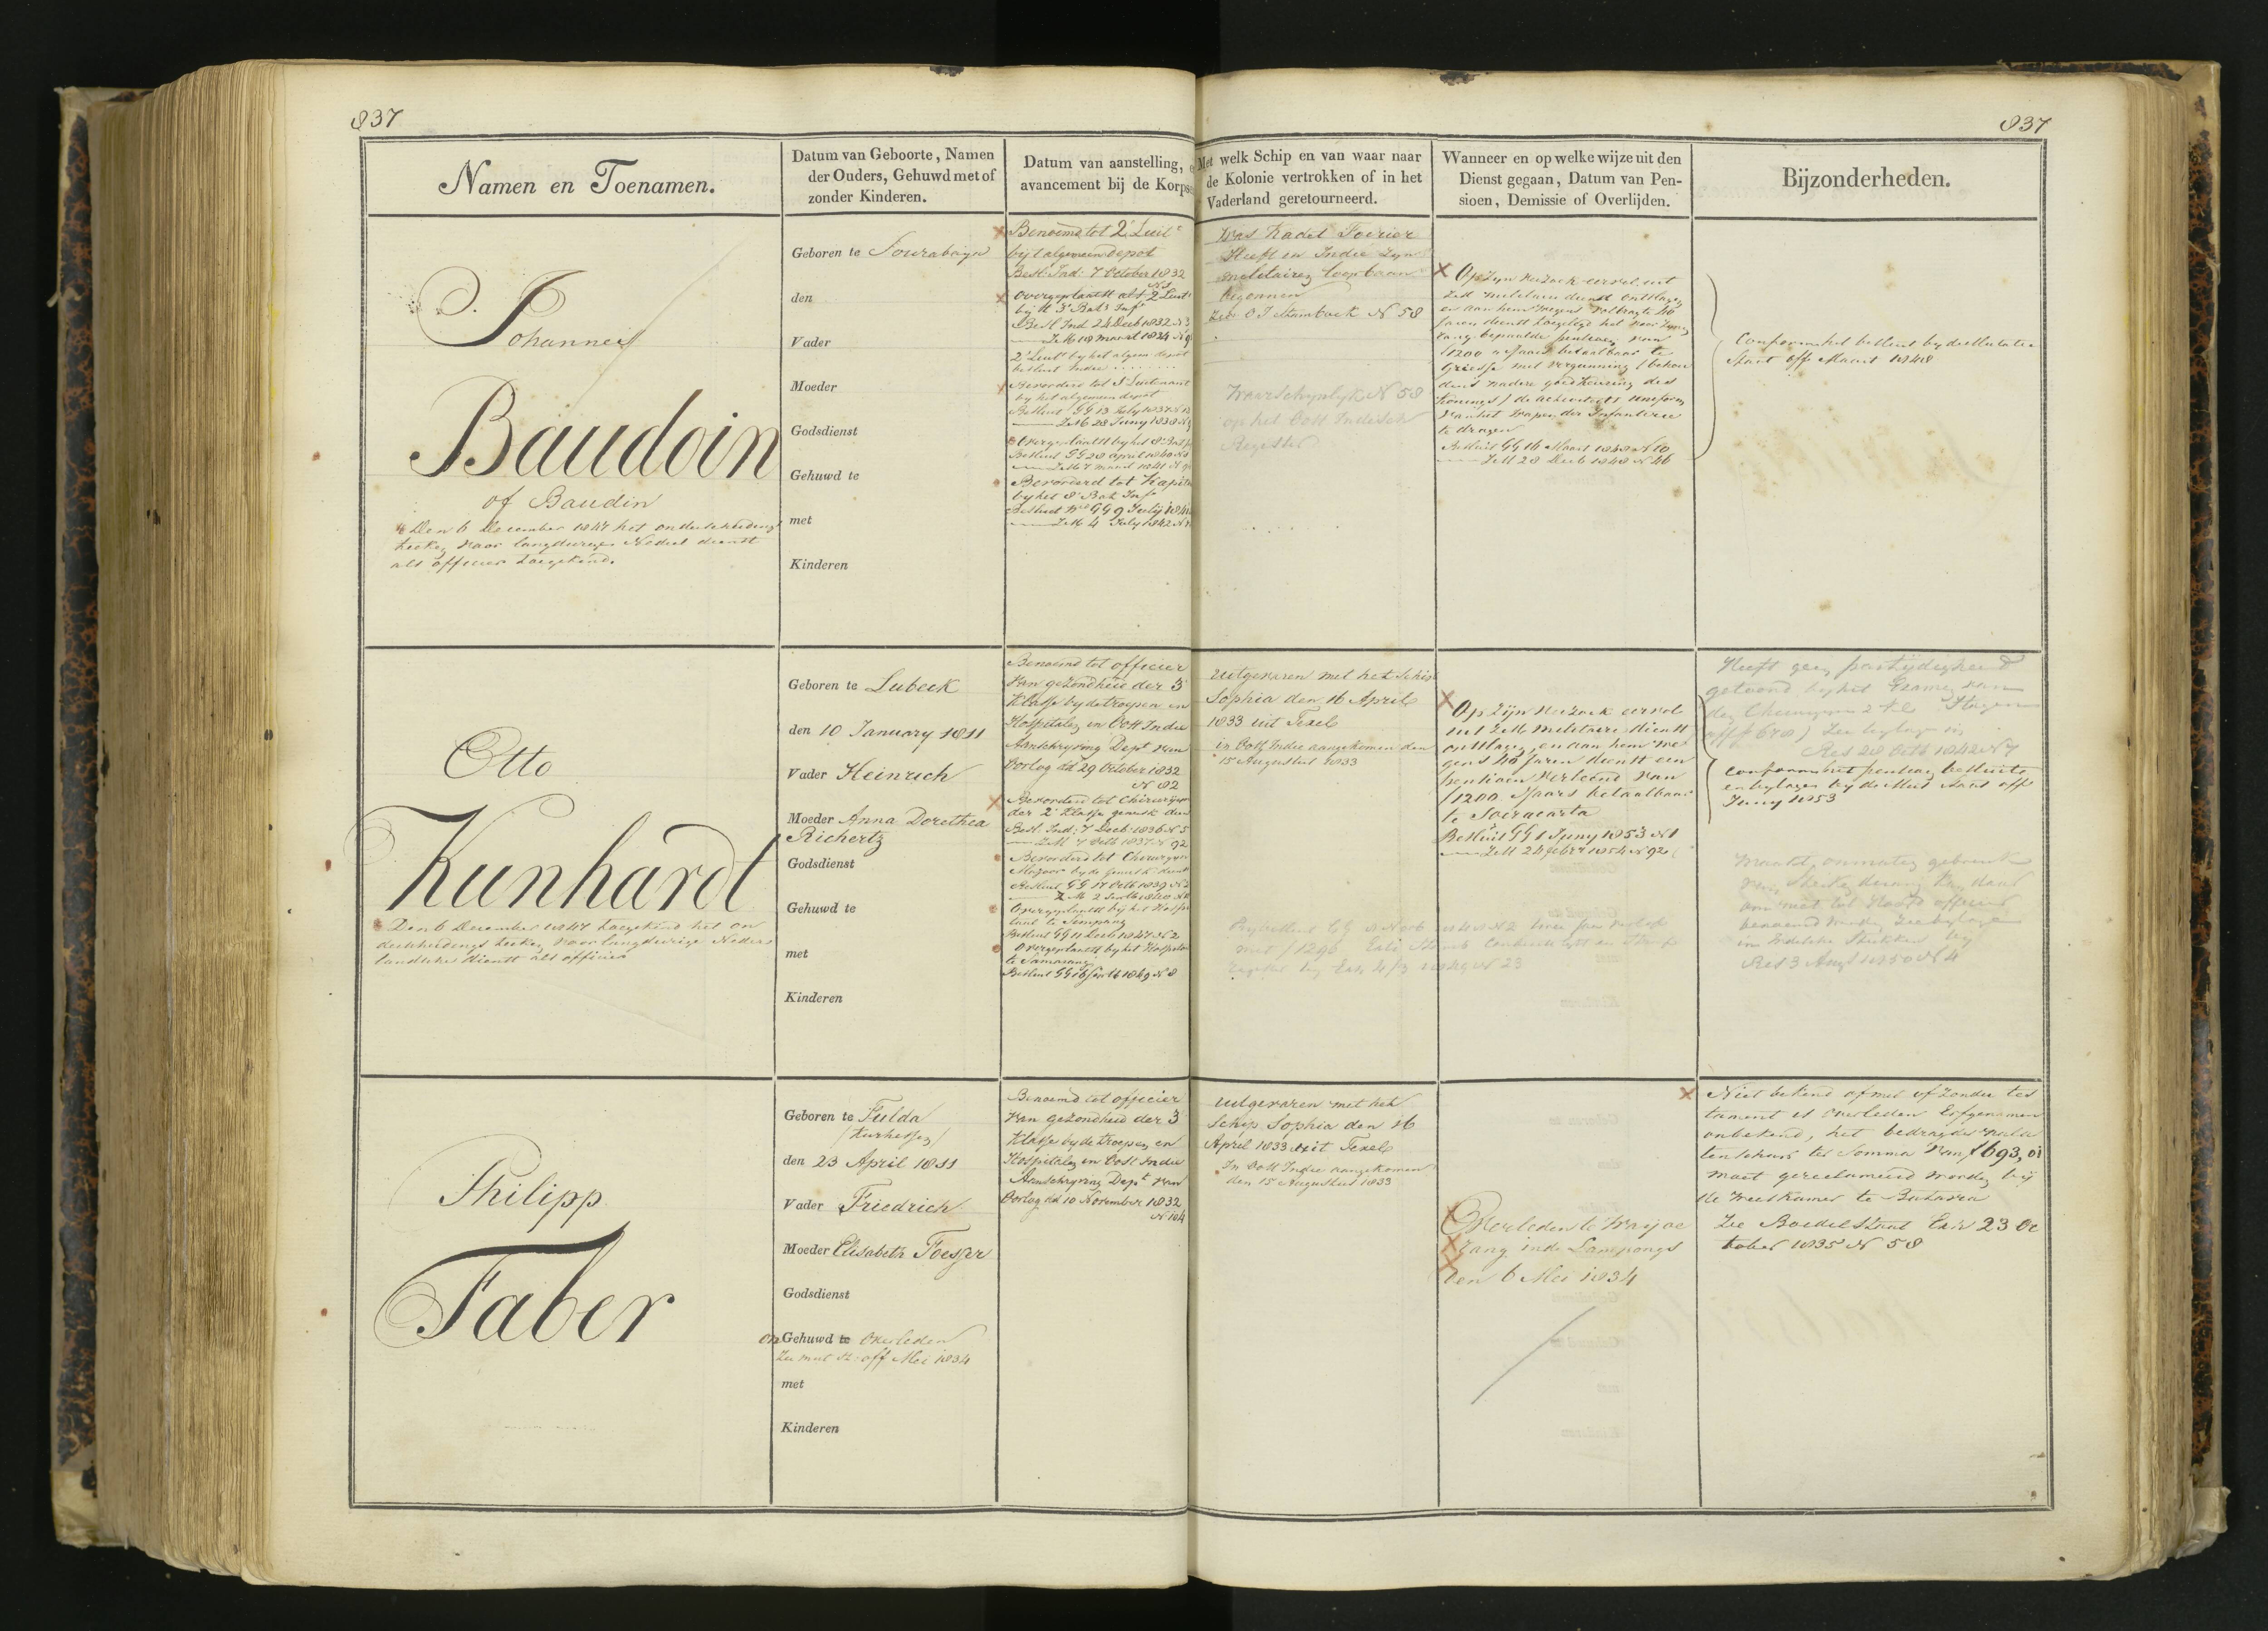 837
837
Namen en Toenamen.
Datum van Geboorte, Namen
der Ouders, Gehuwd met of
zonder Kinderen.
Datum van aanstelling, e
avancement bij de Korps
Met welk Schip en van waar naar
de Kolonie vertrokken of in het
Vaderland geretourneerd.
Wanneer en op welke wijze uit den
Dienst gegaan, Datum van Pen-
sioen, Demissie of Overlijden.
Bijzonderheden.
Johannes
Baudoin
of Baudin
Den 6 December 1847 het onderscheidings
teeken voor langdurige Nederl dienst
als officier toegekend.
Geboren te Sourabaya
den
Vader
Moeder
Godsdienst
Gehuwd te
met
Kinderen
Benoemd tot 2e Luit
bij t algemeen depot
Besl: Ind: 7 October 1832
Overgeplaatst als 2 Luit
bij H 3e Bat Inf
Besl Ind 24 Decb 1832 N 3
2e Luit by het algem depot
besluit Indie
Bevorderd tot 1 Luitenant
by het algemeen depot
Besluit GG 13 July 1837 N 13
ZM 28 Juny 1838 N
Overgeplaatst by het 8e Bat
Besluit GG 28 april 1840
ZM 7 maart 1841 N
Bevorderd tot Kapit
by het 8 Bat Inf
Besluit GG 9 July 184
ZM 4 July 1842 N
Was Kadet Foerier
Heeft in Indie zyn
militaire loopbaan
begonnen
Zie O I Stamboek N 58
Waarschynlyk N 58
op het Oost Indisch
Register
Op zyn verzoek eervol uit
ZM militaire dienst ontslagen
en aan hem wegens volbragte 40
jaren dienst toegelegd het voor zyn
rang bepaalde pensioen van
ƒ1200 's jaars betaalbaar te
Grissee met vergunning (behou
dens nadere goedkeuring des
Konings) de activiteits uniform
van het wapen der Infanterie
te dragen
Besluit GG 16 Maart 1848 N 10
ZM 28 Decb 1848 N 46
Conform het besluit by de Mutatie
Staat off Maart 1848
Otto
Kunhardt
Den 6 December 1847 toegekend het on
derscheidings teeken voor langdurige Neder
landsche dienst als officier
Geboren te Lubeck
den 10 January 1811
Vader Heinrich
Moeder Anna Dorethea
Richertz
Godsdienst
Gehuwd te
met
Kinderen
Benoemd tot officier
van gezondheid der 3
Klasse by de troepen en
Hospitalen in Oost Indie
Aanschryving Dept van
Oorlog dd 29 October 1832
N 82
Bevorderd tot Chirurgyn
der 2e Klasse geneesk dien
Besl. Ind: 7 Decb: 1836 N 5
ZM 7 Octb 1837 N 92
Bevorderd tot Chirurgyn
Majoor by de geneesk dienst
Besluit GG 17 Octb 1839 N 2
Overgeplaatst by het Hospi
taal te Sempang
Besluit GG 11 Decb 1847 N 2
Overgeplaatst by het Hospitaal
te Samarang
Besluit GG 16 Septb 1849 N 8
Uitgevaren met het Schip
Sophia den 16 April
1833 uit Texel
in Oost Indie aangekomen den
15 Augustus 1833
Op zyn verzoek eervol
uit ZM militaire dienst
ontslagen, en aan hem we
gens 40 jaren dienst een
pensioen verleend van
ƒ1200 's jaars betaalbaar
te Soeracarta
Besluit GG 1 Juny 1853 N 1
ZM 24 febr 1854 N 92
Heeft geen
getoond by het Examen van
Zie bylagen in
Res 28 Octb 1842 N 7
conform het pensioen besluit
en bylagen by de Mut Staat off
Juny 1853
Maakt onmatig gebruik
van Sterken drank
benoemd zie bylagen
in Indische Stukken by
Res 3 Aug 1850 N 4
Philipp
Faber
Geboren te Fulda
(Kurhessen)
den 23 April 1811
Vader Friedrich
Moeder Elisabeth Foesser
Godsdienst
on Gehuwd te Overleden
Zie mut st: off Mei 1834
met
Kinderen
Benoemd tot officier
van gezondheid der 3
Klasse by de troepen en
Hospitalen in Oost Indie
Aanschryving Dept van
Oorlog dd 10 November 1832
N 104
Uitgevaren met het
Schip Sophia den 16
April 1833 uit Texel
In Oost Indie aangekomen
den 15 Augustus 1833
Overleden te
rang in de Lampongs
den 6 Mei 1834
Niet bekend of met of zonder tes
tament is overleden Erfgenamen
onbekend, het bedrag der nala
tenschap ter Somma van ƒ693,01
moet gereclameerd worden by
de weeskamer te Batavia
Zie Boedel Staat Exh 23 Oc
tober 1835 N 58